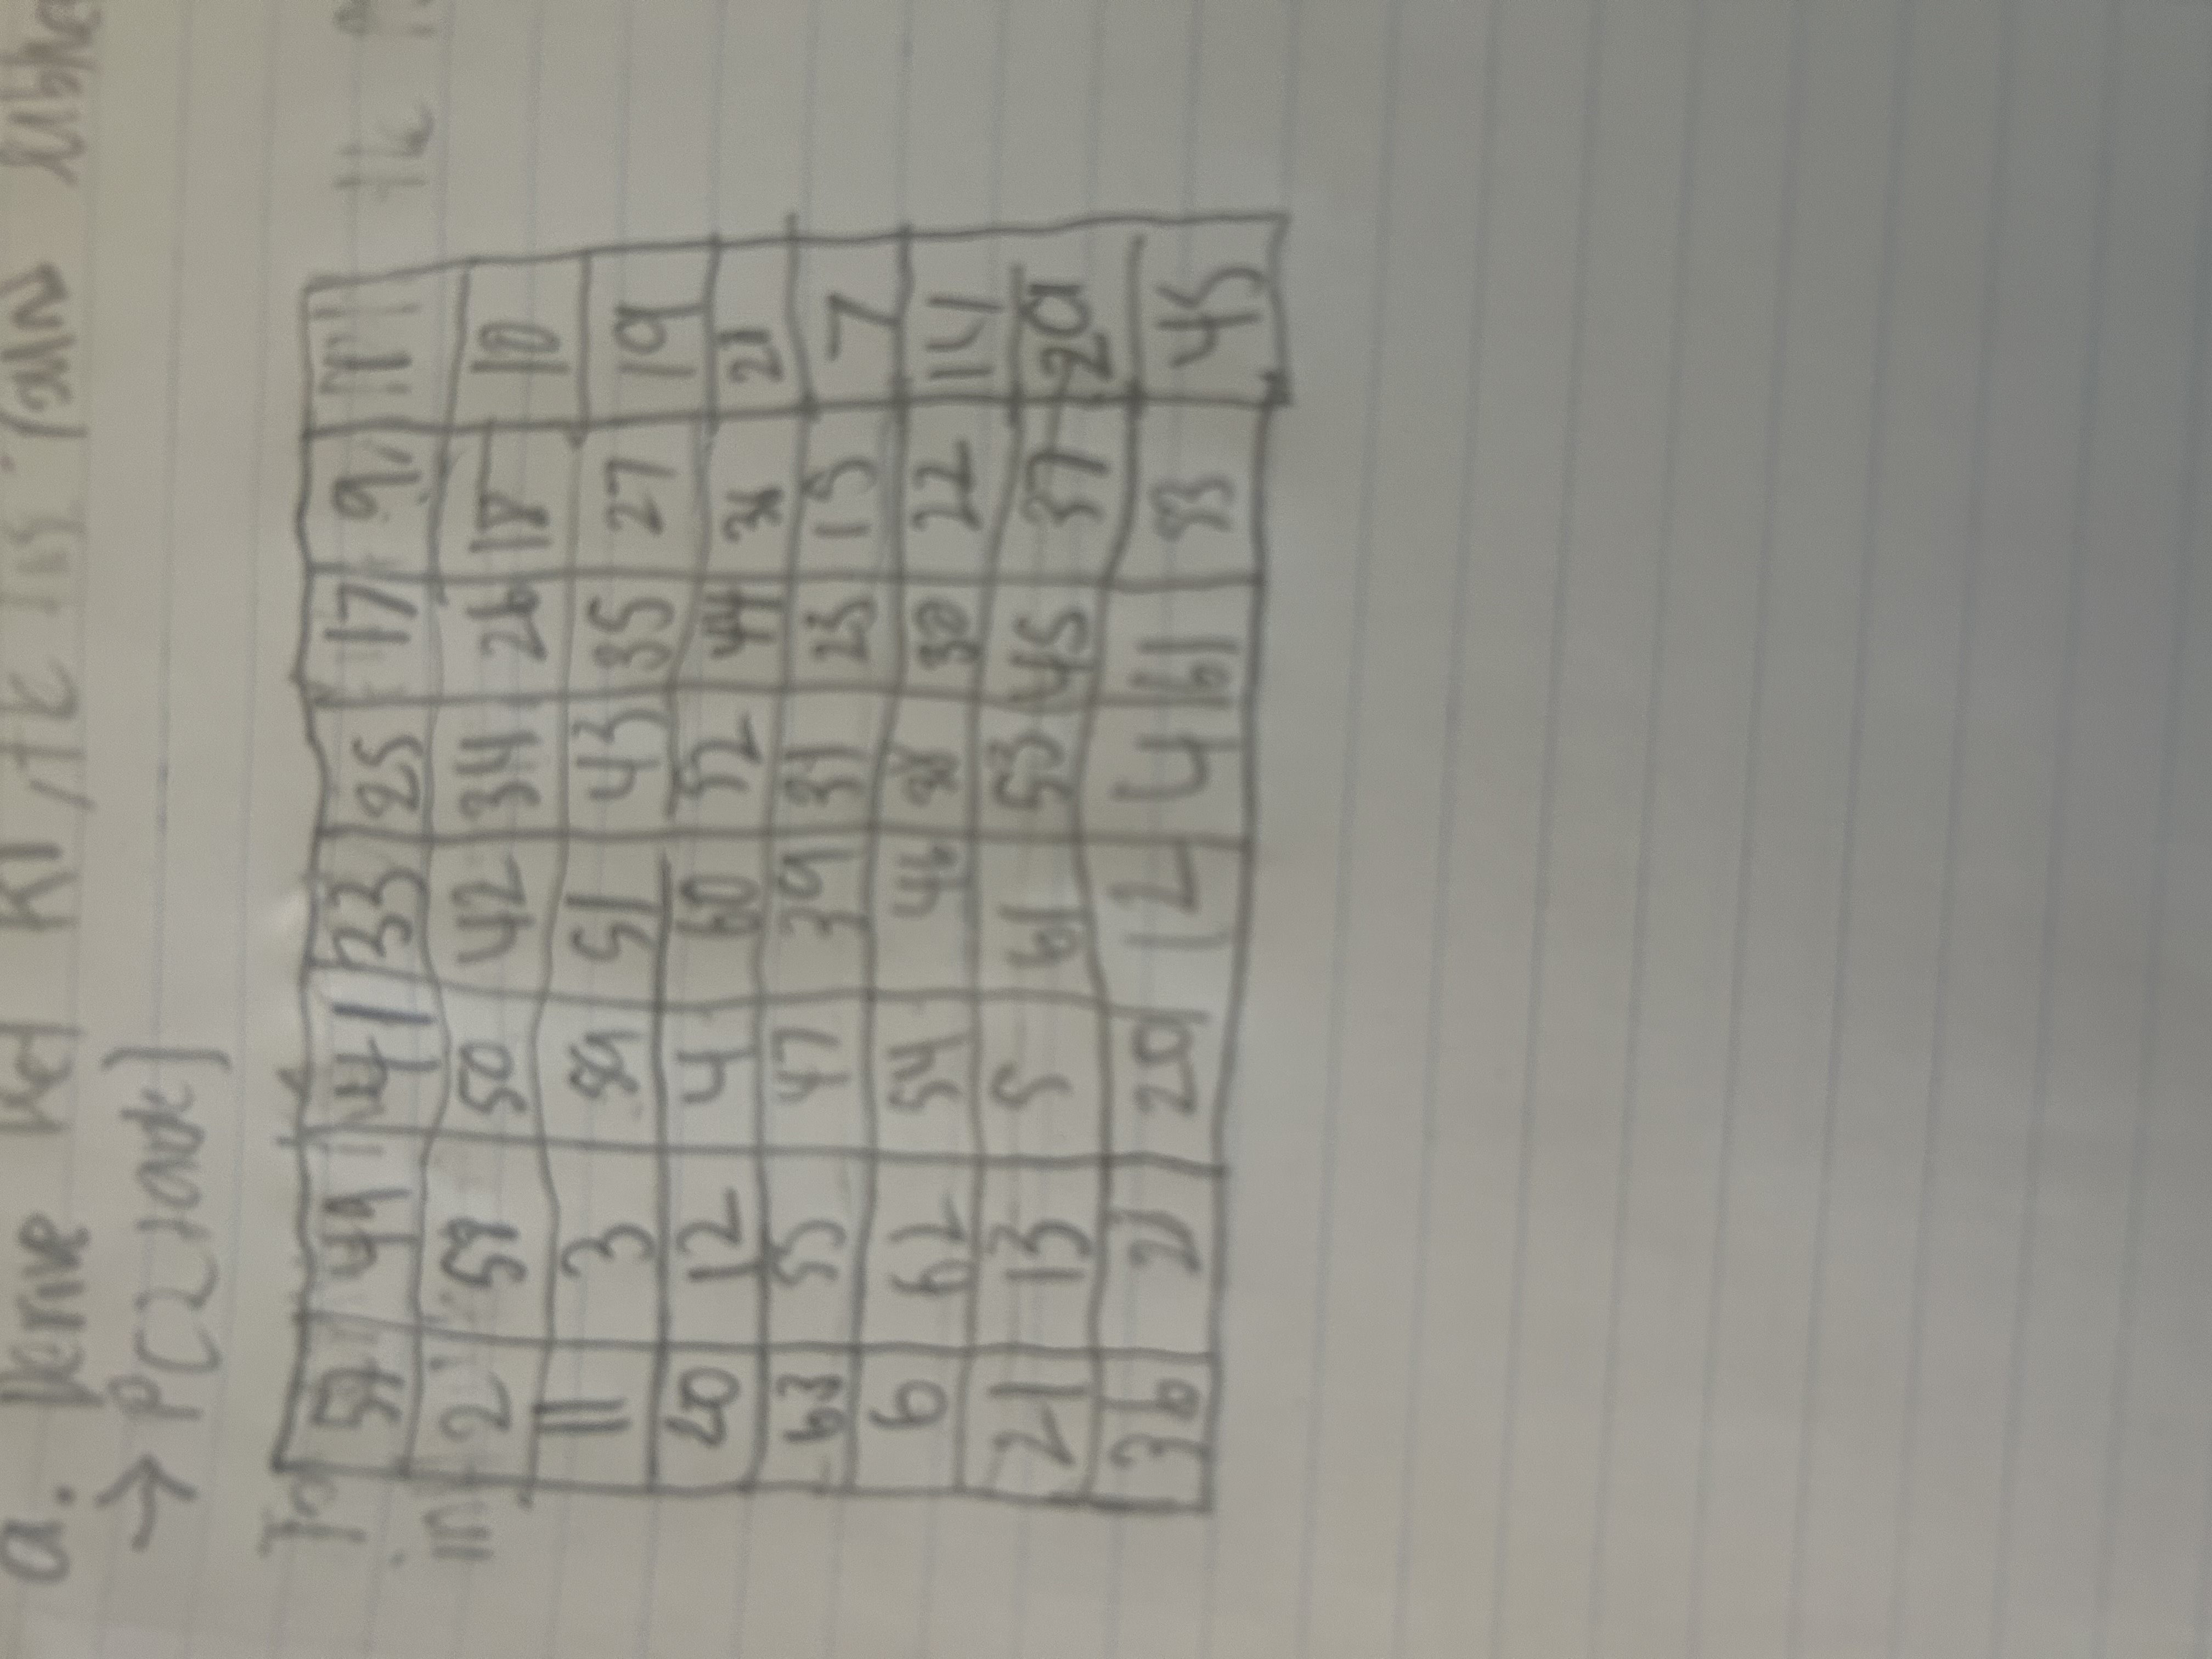 a. Derive K1, the round
→ P[2 track]
57 49 41 33 25 17 9 1
2 58 50 42 34 26 18 10
11 3 59 51 43 35 27 19
20 12 4 60 52 44 36
63 55 47 39 31 23 15 7
6 62 54 46 38 30 22 14
21 13 5 61 53 45 37 29
36 20 12 4 61 53 45